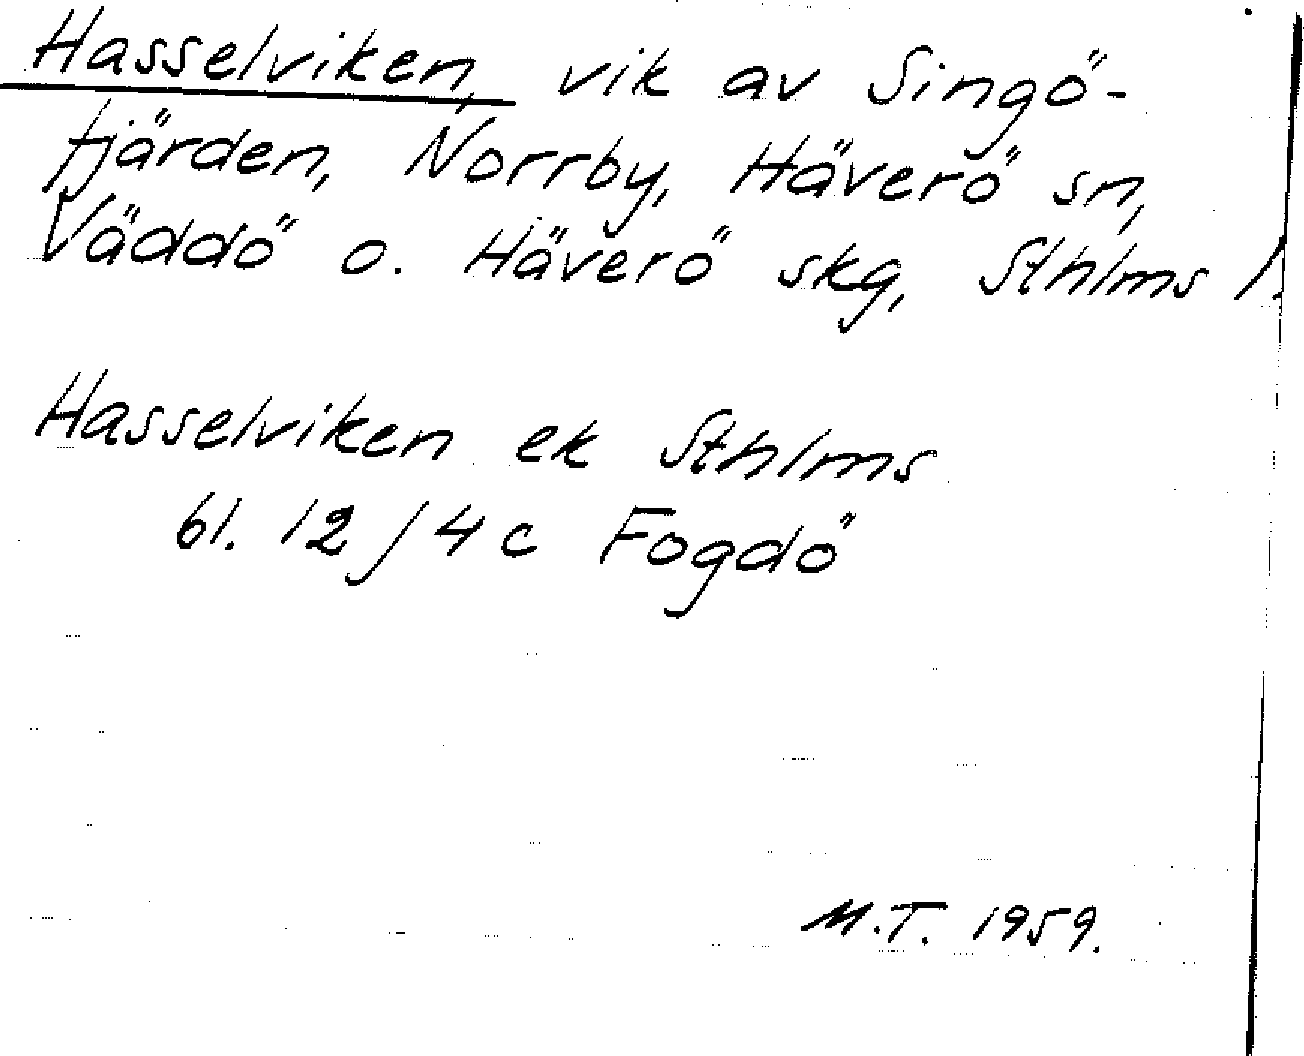 Hasselviken, vik av Singö-
fjärden, Norrby, Häverö sn,
Väddö o. Häverö skg, Sthlms l.
Hasselviken ek Sthlms
bl. 12 J 4 c Fogdö
M.T. 1959.